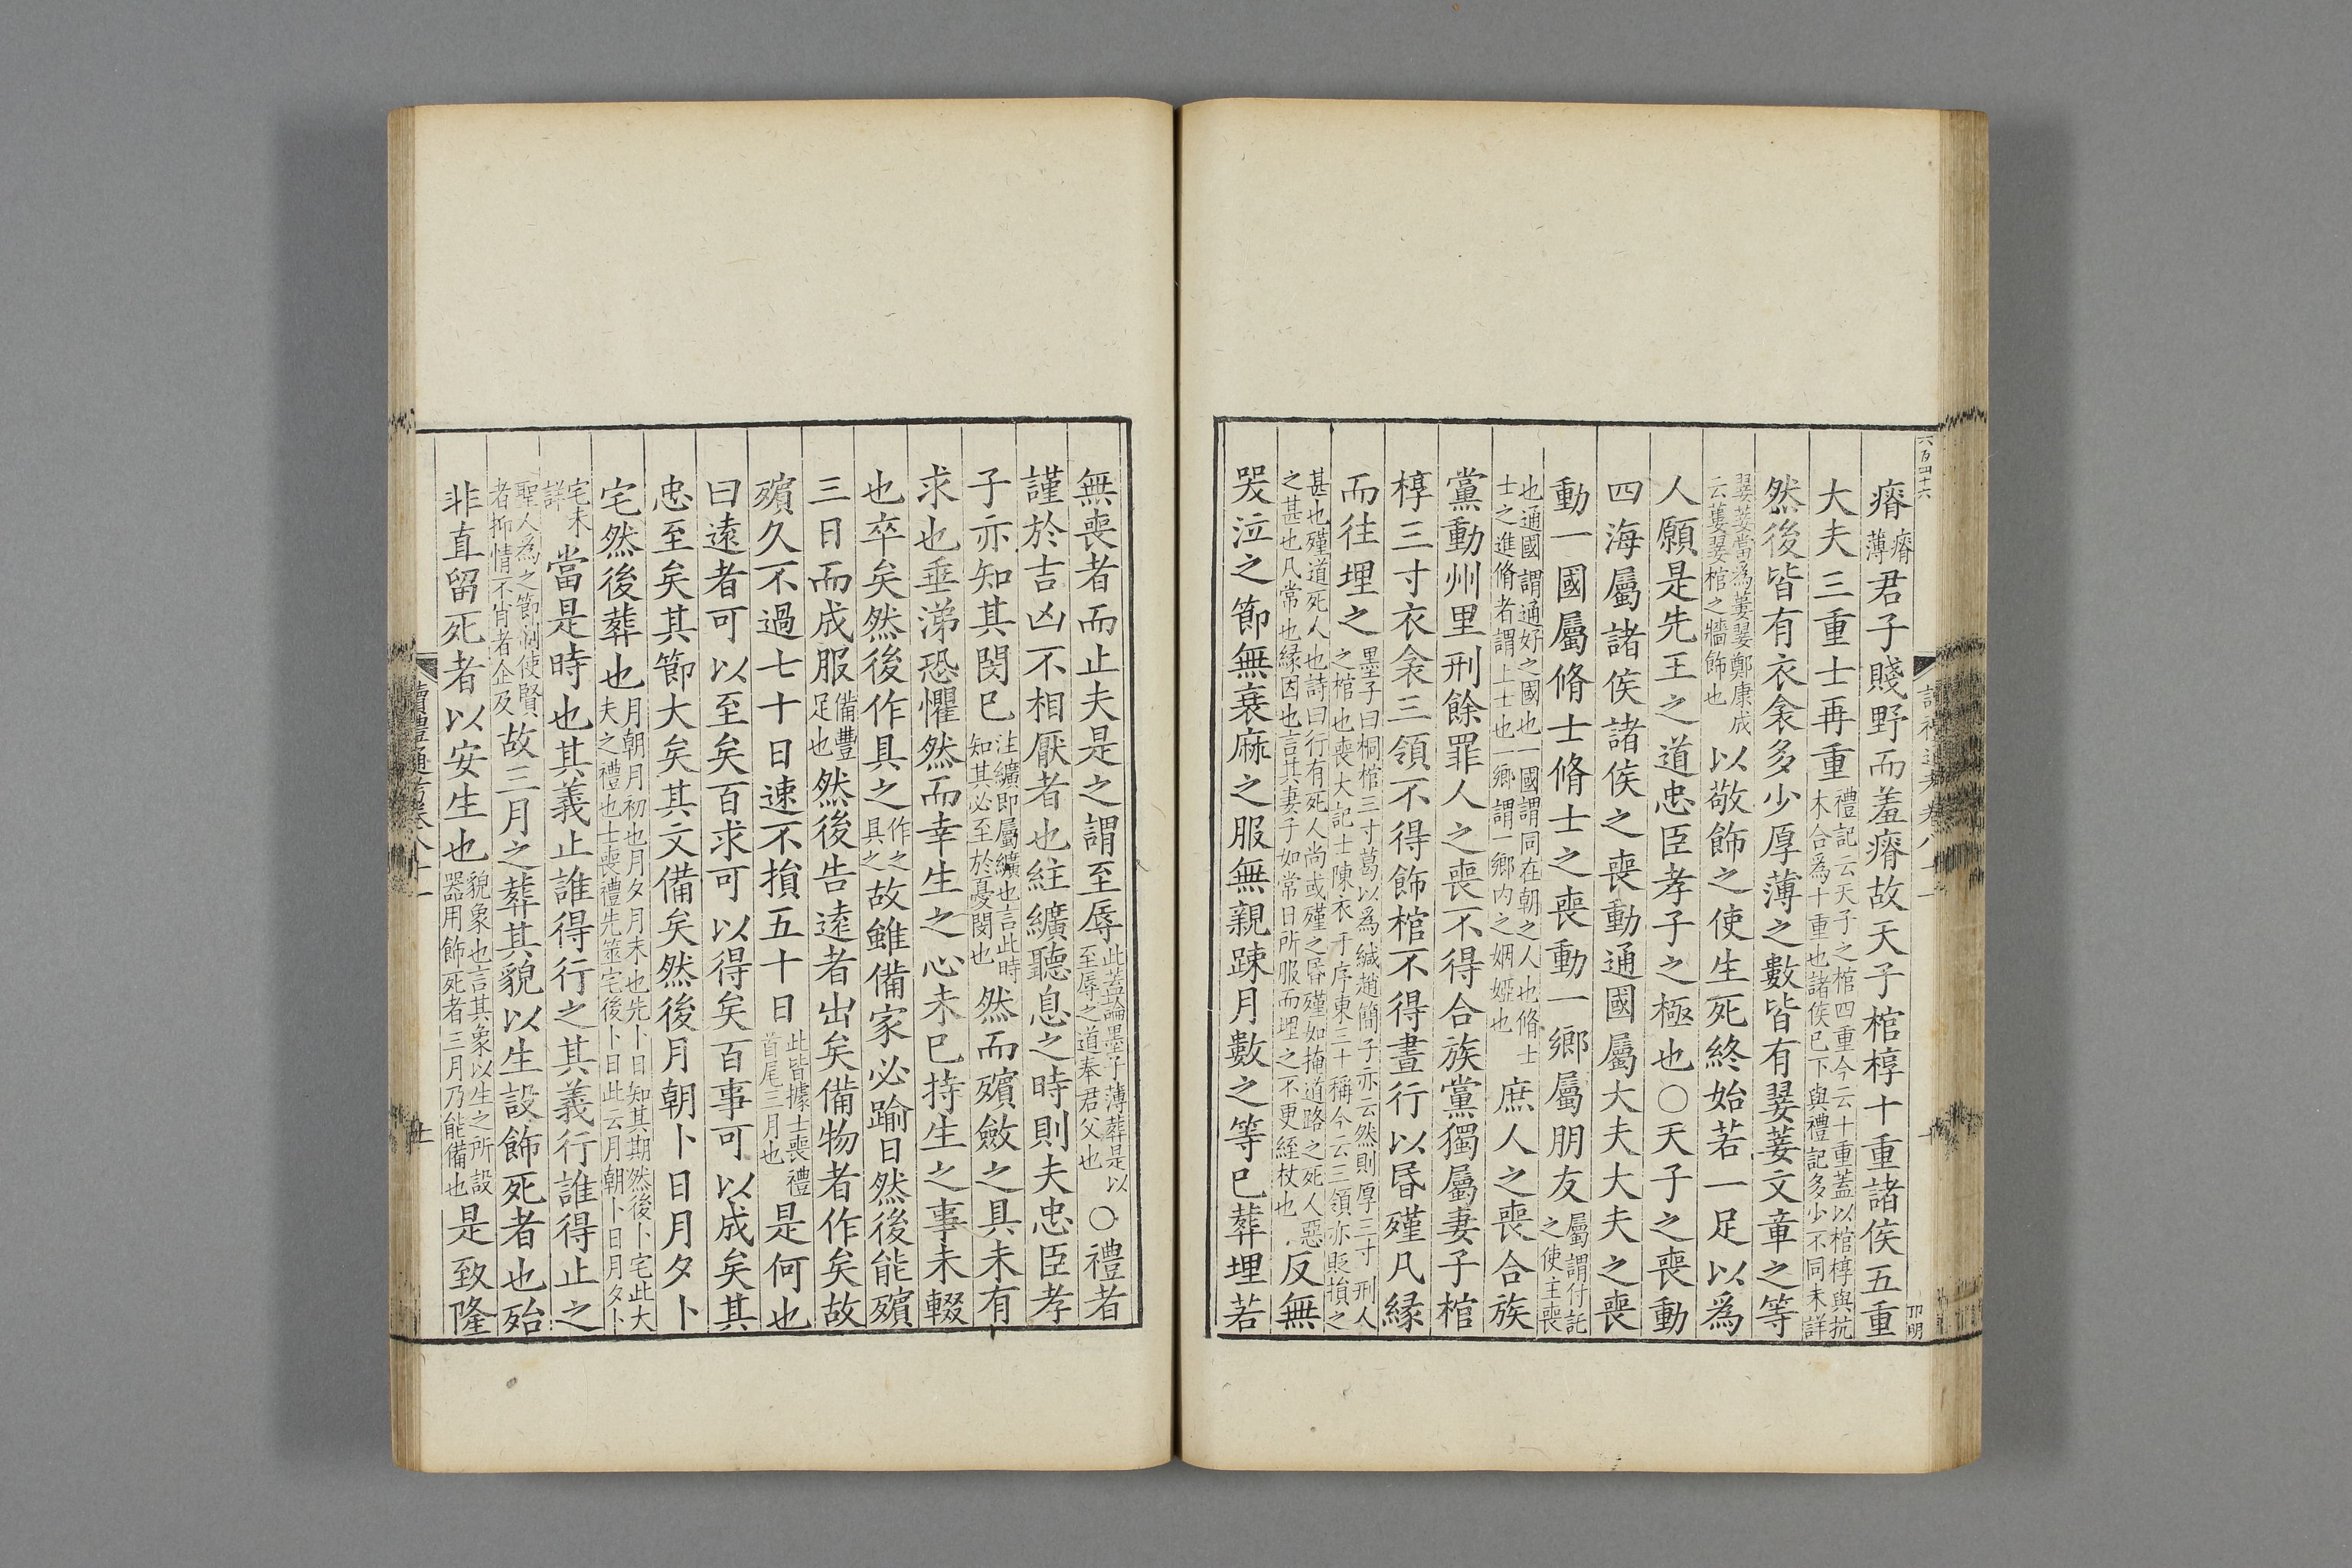 六百四十六
瘠瘠薄君子賤野而羞瘠故天子棺椁十重諸侯五重
大夫三重士再重禮記云天子之棺四重今云十重蓋以棺椁與抗木合為十重也諸侯已下與禮記多少不同未詳
然後皆有衣衾多少厚薄之數皆有翣菨文章之等
翣菨當為蔞翣鄭康成云蔞翣棺之牆飾也以敬飾之使生死終始若一足以為
人願是先王之道忠臣孝子之極也○天子之喪動
四海屬諸侯諸侯之喪動通國屬大夫大夫之喪
動一國屬脩士脩士之喪動一鄉屬朋友屬謂付託之使主喪
也通國謂通好之國也一國謂同在朝之人也脩士士之進脩者謂上士也一鄉謂一鄉內之姻婭也庶人之喪合族
黨動州里刑餘罪人之喪不得合族黨獨屬妻子棺
椁三寸衣衾三領不得飾棺不得晝行以昏殣凡緣
而往埋之墨子曰桐棺三寸葛以為緘趙簡子亦云然則厚三寸刑人之棺也喪大記士陳衣于序東三十稱今云三領亦貶損之
甚也殣道死人也詩曰行有死人尚或殣之昏殣如掩道路之死人惡之甚也凡常也緣因也言其妻子如常日所服而埋之不更絰杖也反無
哭泣之節無衰麻之服無親踈月數之等已葬埋若
卯明
無喪者而止夫是之謂至辱此蓋論墨子薄葬是以至辱之道奉君父也○禮者
謹於吉凶不相厭者也紸纊聽息之時則夫忠臣孝
子亦知其閔已注纊即屬纊也言此時知其必至於憂閔也然而殯斂之具未有
求也垂涕恐懼然而幸生之心未已持生之事未輟
也卒矣然後作具之作之具之故雖備家必踰日然後能殯
三日而成服備豐足也然後告遠者出矣備物者作矣故
殯久不過七十日速不損五十日此皆據士喪禮首尾三月也是何也
曰遠者可以至矣百求可以得矣百事可以成矣其
忠至矣其節大矣其文備矣然後月朝卜日月夕卜
宅然後葬也月朝月初也月夕月末也先卜日知其期然後卜宅此大夫之禮也士喪禮先筮宅後卜日此云月朝卜日月夕卜
宅未詳當是時也其義止誰得行之其義行誰得止之
聖人為之節制使賢者抑情不肖者企及故三月之葬其貌以生設飾死者也殆
非直留死者以安生也貌象也言其象以生之所設器用飾死者三月乃能備也是致隆
讀禮通考卷八十一
十一